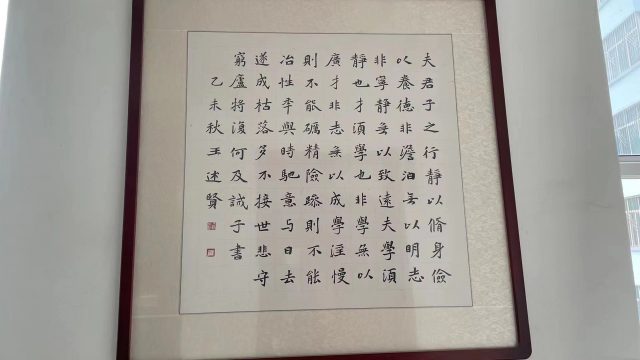 夫君子之行靜以脩身儉
以養德非澹泊无以明志
非寧靜毋以致遠夫學須
靜也才須學也非學無以
廣才非志無以成學淫慢
則不能礪精險躁則不能
冶性年與時馳意与日去
遂成枯落多不接世悲守
窮廬將復何及誡子書
乙未秋王述賢